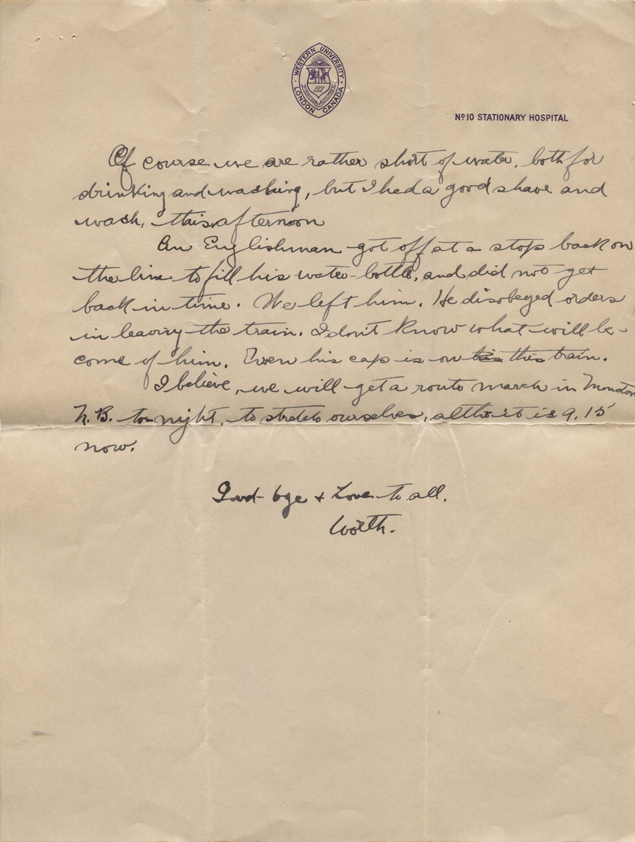 WESTERN UNIVERSITY
LONDON CANADA
Nº 10 STATIONARY HOSPITAL
Of course we are rather short of water, both for
drinking and washing, but I had a good shave and
wash, this afternoon
An Englishman got off at a stop back on
the line to fill his water-bottle, and did not get
back in time. We left him. He disobeyed orders
in leaving the train. I don't know what will be-
come of him. Even his cap is on his this train.
I believe, we will get a route march in Moncton
N.B. to-night, to stretch ourselves, altho it is 9.15
now.
Good-bye + Love to all.
Worth.